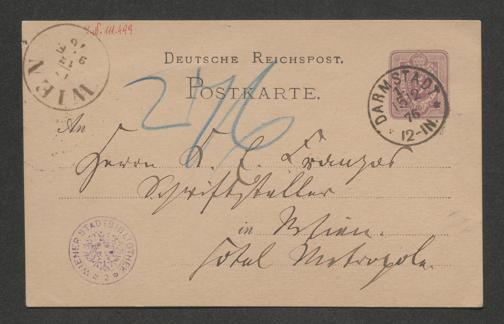 WIEN
DEUTSCHE REICHSPOST.
POSTKARTE.
276
DARMSTADT
76
12-1N.
An
Herrn K. E. Franzos
Schriftsteller
in Wien.
Hotel Metropole.
WIENER STADTBIBLIOTHEK